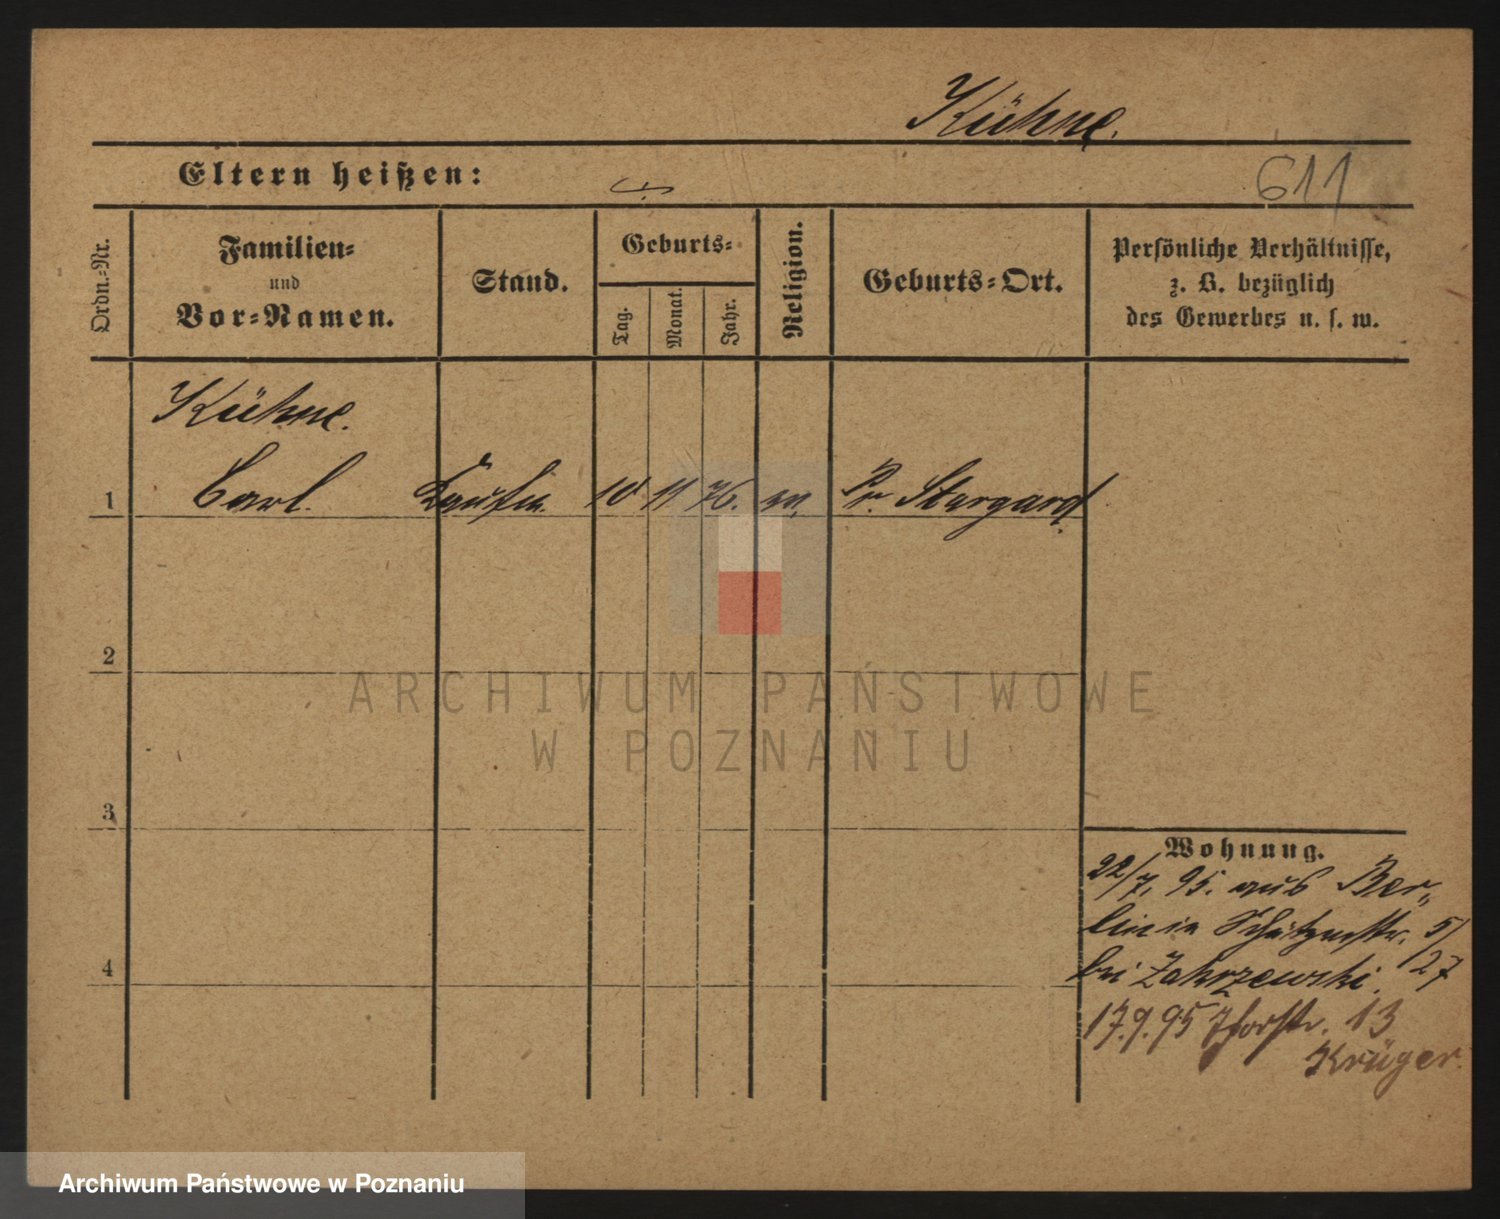 Kühne.
Eltern heißen:
611
Ordn.-Nr.
Familien-
und
Vor-Namen.
Stand.
Geburts-
Tag.
Monat.
Jahr.
Religion.
Geburts-Ort.
Persönliche Verhältnisse,
z. B. bezüglich
des Gewerbes u. s. w.
Kühne.
1 Carl. Kaufm. 10 11 76. Pr. Stargard.
2
3
4
ARCHIWUM PAŃSTWOWE
W POZNANIU
Wohnung.
22/7. 95. aus Ber-
lin in Schützenstr. 5/
bei Zakrzewski. 27
17.9.95 Thorstr. 13
Krüger.
Archiwum Państwowe w Poznaniu